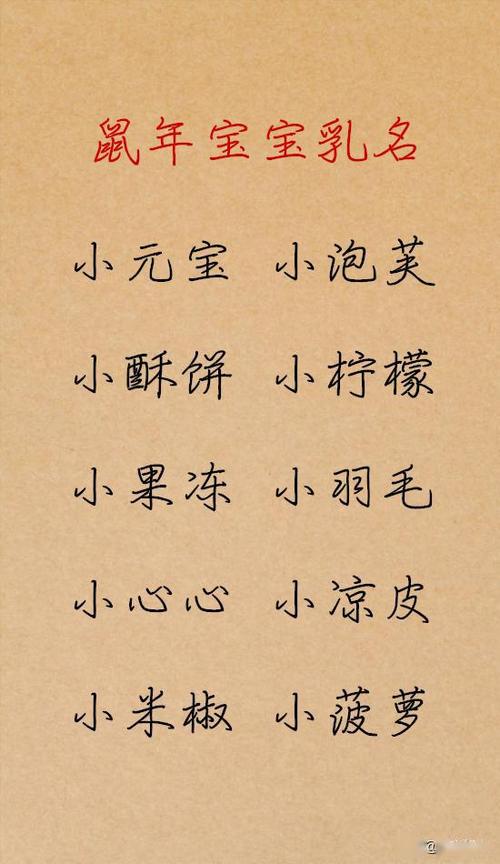 鼠年宝宝乳名
小元宝 小泡芙
小酥饼 小柠檬
小果冻 小羽毛
小心心 小凉皮
小米椒 小菠萝